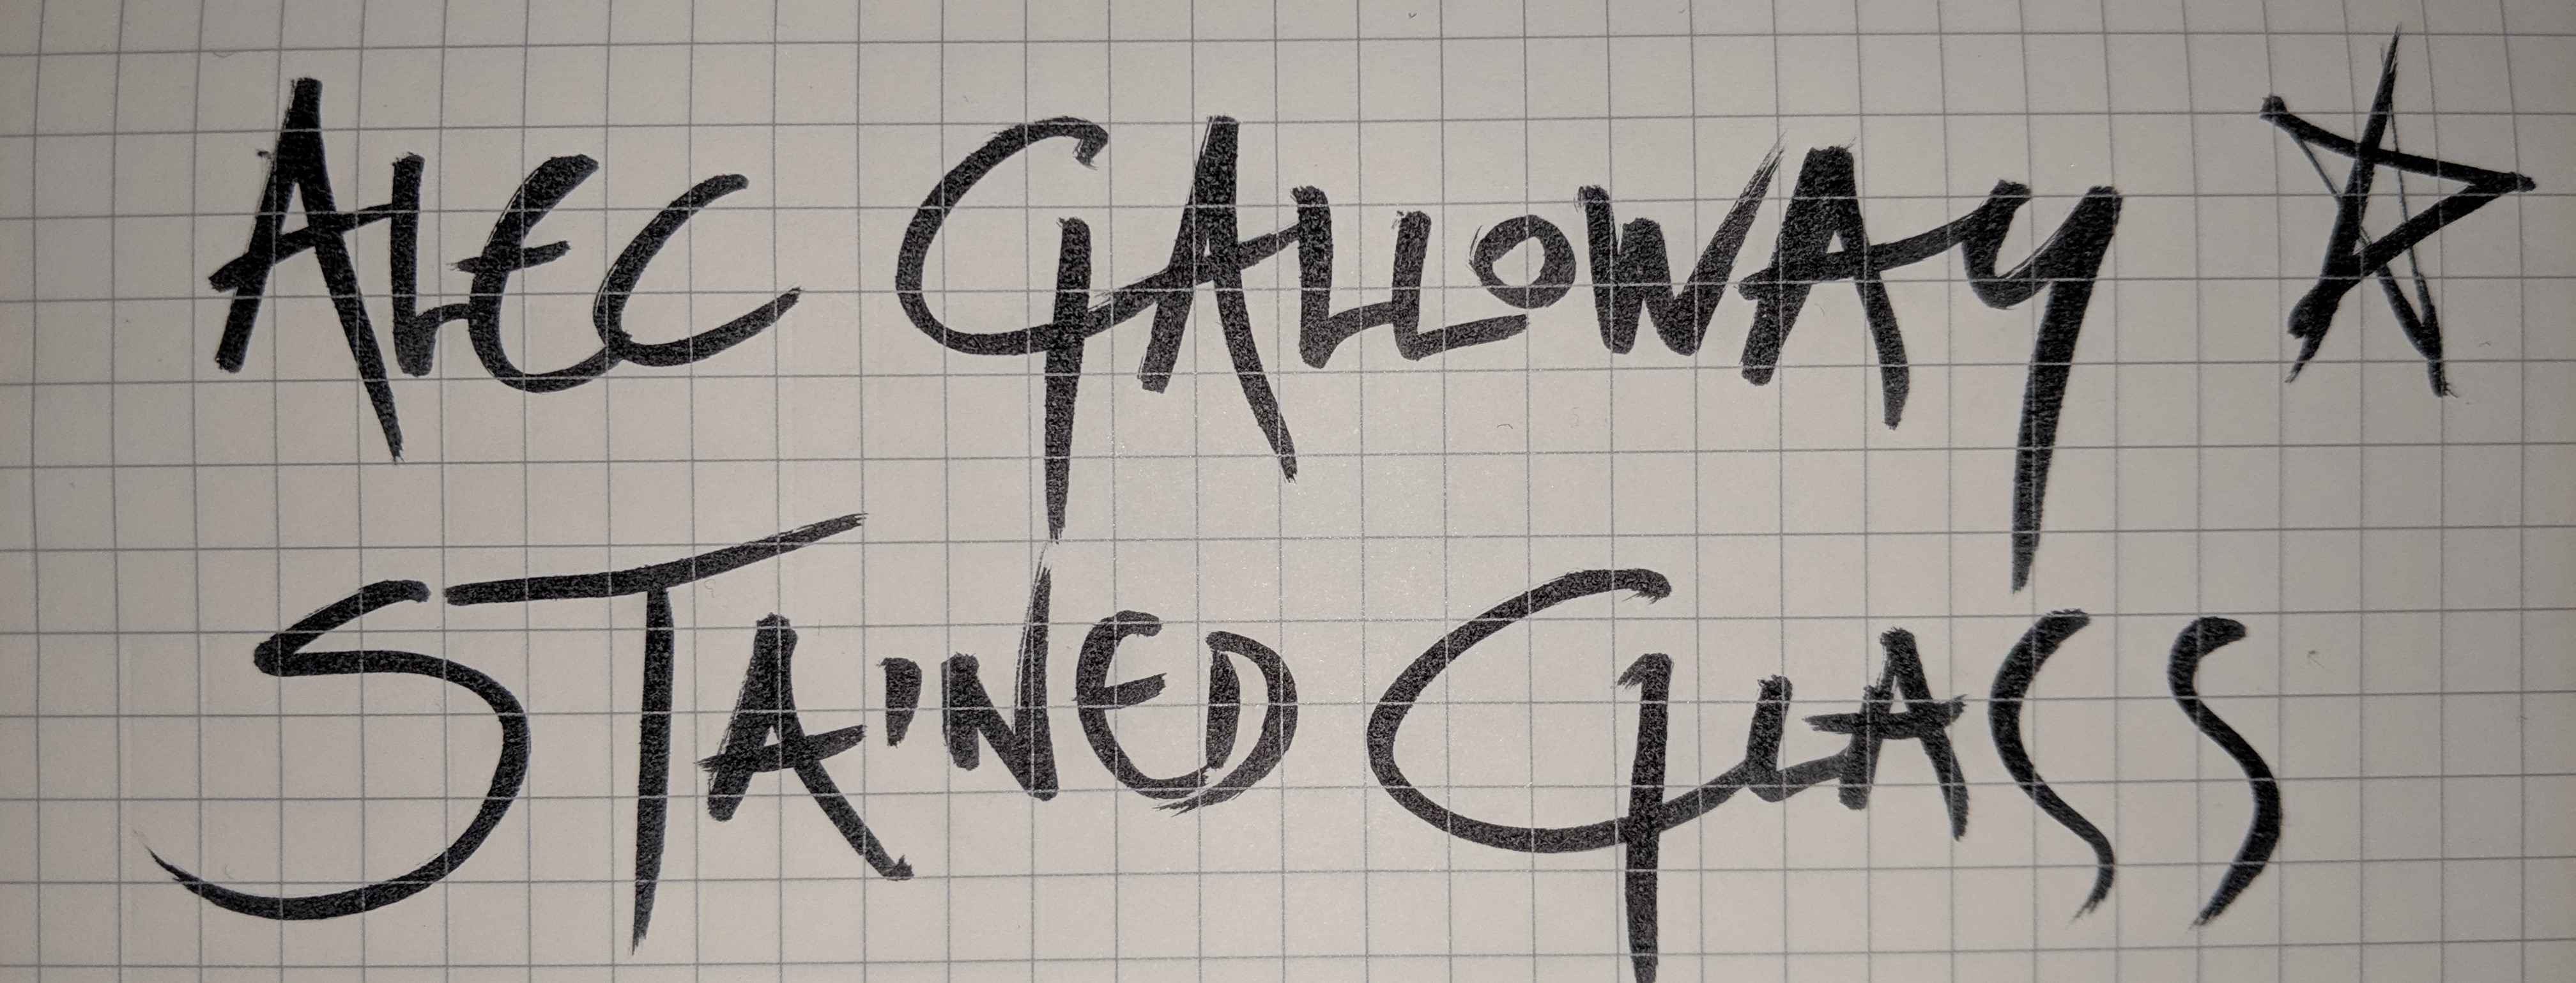 ALEC GALLOWAY ☆
STAINED GLASS